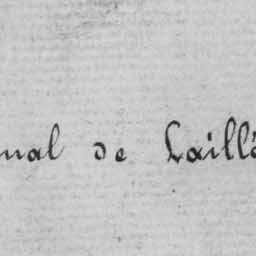 nal de Laillé